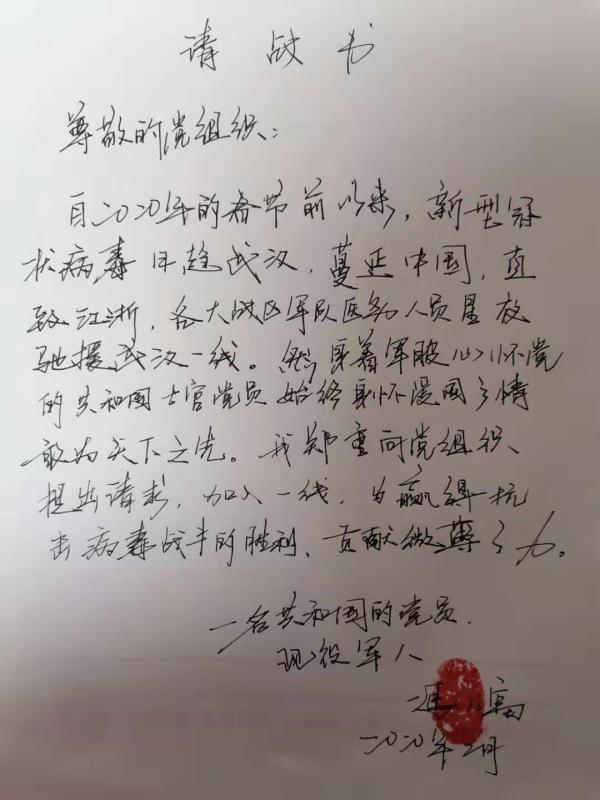 请战书
尊敬的党组织:
自二0二0年的春节前以来,新型冠
状病毒日趋武汉,蔓延中国,直
致江浙,各大战区军队医务人员星夜
驰援武汉一线。然身着军服心怀党
的共和国士官党员始终身怀爱国之情
敢为天下之先。我郑重向党组织、
提出请求,加入一线,为赢得抗
击病毒战斗的胜利,贡献微薄之力。
一名共和国的党员.
现役军人
二0二0年二月